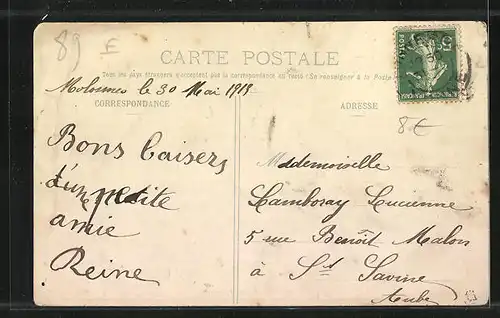 89 E
CARTE POSTALE
Tous les pays étrangers n'acceptent pas la correspondance au recto (Se renseigner à la Poste)
le 30 Mai 1915
CORRESPONDANCE
ADRESSE
8€
Bons baisers
d'une petite
amie
Reine
Mademoiselle
Lamboray Lucienne
5 rue Benoît Malon
à St Savine
Aube
5c